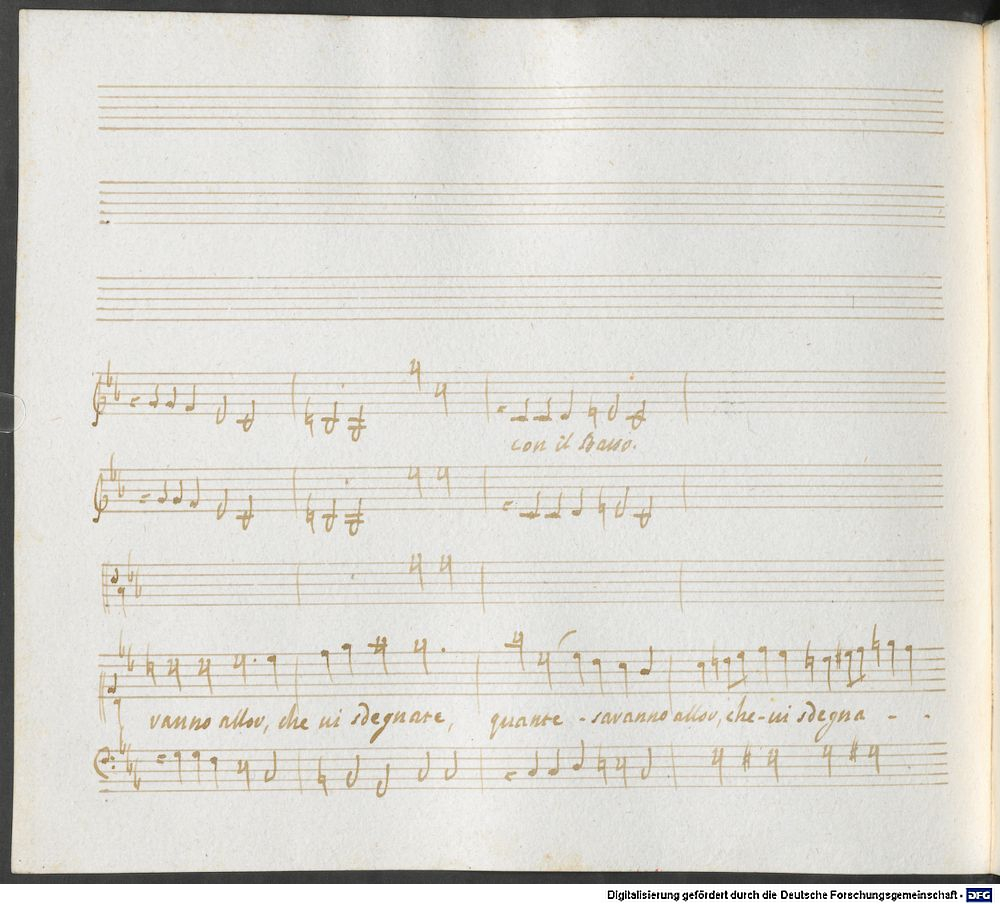 con il Basso.
vanno allor, che vi sdegnate, quante - saranno allor, che - vi sdegna - -
Digitalisierung gefördert durch die Deutsche Forschungsgemeinschaft - DFG